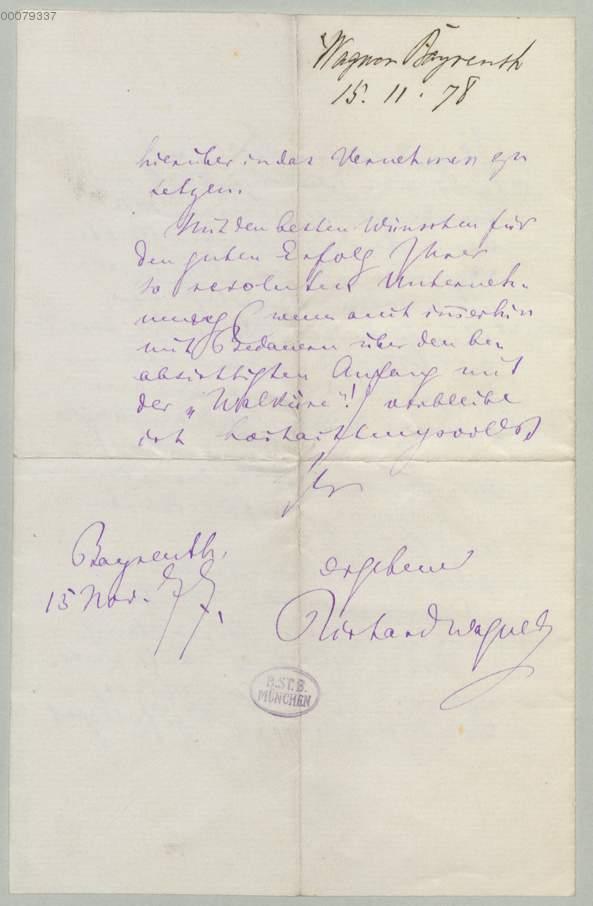 00079337
Wagner Bayreuth
15. 11. 78
hierüber in das Vernehmen zu
setzen.
Mit den besten Wünschen für
den guten Erfolg Ihrer
so resoluten Unterneh-
mung (wenn auch im̅erhin
mit Bedauern über den be-
absichtigten Anfang mit
der „Walküre"!) verbleibe
ich hochachtungsvollst
Ihr
Bayreuth,
15 Nov. 77.
ergebener
Richard Wagner
B.ST.B.
MÜNCHEN